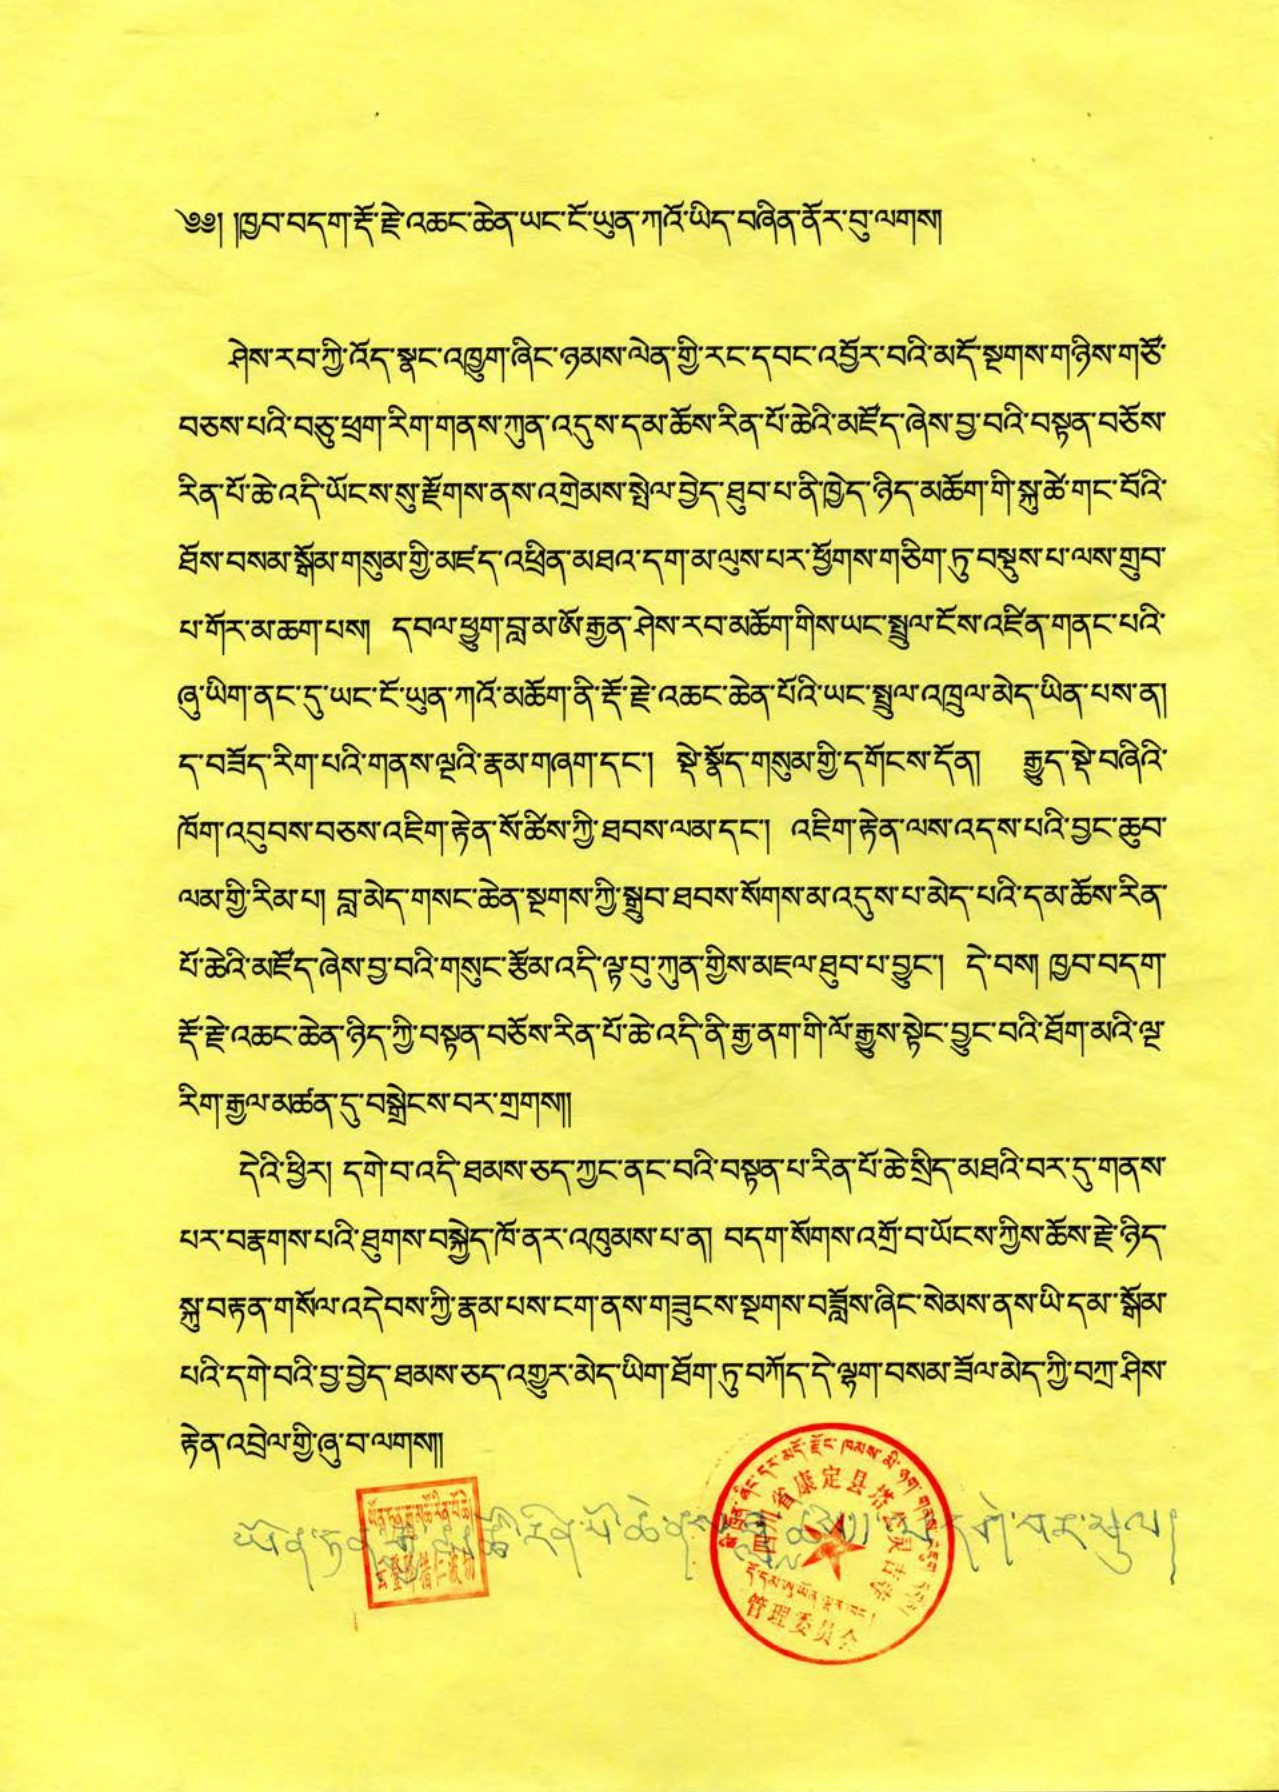 ༄༅། །ཁྱབ་བདག་རྡོ་རྗེ་འཆང་ཆེན་ཡང་ངོ་ཡུན་ཀའོ་ཡིད་བཞིན་ནོར་བུ་ལགས།
ཤེས་རབ་ཀྱི་འོད་སྣང་འཁྱུག་ཞིང་ཉམས་ལེན་གྱི་རང་དབང་འབྱོར་བའི་མདོ་སྔགས་གཉིས་གཙོ་
བཅས་པའི་བཅུ་ཕྲག་རིག་གནས་ཀུན་འདུས་དམ་ཆོས་རིན་པོ་ཆེའི་མཛོད་ཞེས་བྱ་བའི་བསྟན་བཅོས་
རིན་པོ་ཆེ་འདི་ཡོངས་སུ་རྫོགས་ནས་འགྲེམས་སྤེལ་བྱེད་ཐུབ་པ་ནི་ཁྱེད་ཉིད་མཆོག་གི་སྐུ་ཚེ་གང་བོའི་
ཐོས་བསམ་སྒོམ་གསུམ་གྱི་མཛད་འཕྲིན་མཐའ་དག་མ་ལུས་པར་ཕྱོགས་གཅིག་ཏུ་བསྡུས་པ་ལས་གྲུབ་
པ་གོར་མ་ཆག་པས། དཔལ་ཕྱུག་བླ་མ་ཨོ་རྒྱན་ཤེས་རབ་མཆོག་གིས་ཡང་སྤྲུལ་ངོས་འཛིན་གནང་པའི་
ཞུ་ཡིག་ནང་དུ་ཡང་ངོ་ཡུན་ཀའོ་མཆོག་ནི་རྡོ་རྗེ་འཆང་ཆེན་པོའི་ཡང་སྤྲུལ་འཁྲུལ་མེད་ཡིན་པས་ན།
ད་བཟོད་རིག་པའི་གནས་ལྔའི་རྣམ་གཞག་དང་། སྡེ་སྣོད་གསུམ་གྱི་དགོངས་དོན། རྒྱུད་སྡེ་བཞིའི་
ཁོག་འབུབས་བཅས་འཇིག་རྟེན་སོ་ཚིས་ཀྱི་ཐབས་ལམ་དང་། འཇིག་རྟེན་ལས་འདས་པའི་བྱང་ཆུབ་
ལམ་གྱི་རིམ་པ། བླ་མེད་གསང་ཆེན་སྔགས་ཀྱི་སྒྲུབ་ཐབས་སོགས་མ་འདུས་པ་མེད་པའི་དམ་ཆོས་རིན་
པོ་ཆེའི་མཛོད་ཞེས་བྱ་བའི་གསུང་རྩོམ་འདི་ལྟ་བུ་ཀུན་གྱིས་མཇལ་ཐུབ་པ་བྱུང་། དེ་བས། ཁྱབ་བདག་
རྡོ་རྗེ་འཆང་ཆེན་ཉིད་ཀྱི་བསྟན་བཅོས་རིན་པོ་ཆེ་འདི་ནི་རྒྱ་ནག་གི་ལོ་རྒྱུས་སྟེང་བྱུང་བའི་ཐོག་མའི་ལྔ་
རིག་རྒྱལ་མཚན་དུ་བསྒྲེངས་བར་གྲགས།།
དེའི་ཕྱིར། དགེ་བ་འདི་ཐམས་ཅད་ཀྱང་ནང་བའི་བསྟན་པ་རིན་པོ་ཆེ་སྲིད་མཐའི་བར་དུ་གནས་
པར་བརྣགས་པའི་ཐུགས་བསྐྱེད་ཁོ་ནར་འཁུམས་པ་ན། བདག་སོགས་འགྲོ་བ་ཡོངས་ཀྱིས་ཆོས་རྗེ་ཉིད་
སྐུ་བརྟན་གསོལ་འདེབས་ཀྱི་རྣམ་པས་ངག་ནས་གཟུངས་སྔགས་བཟློས་ཞིང་སེམས་ནས་ཡི་དམ་སྒོམ་
པའི་དགེ་བའི་བྱ་བྱེད་ཐམས་ཅད་འགྱུར་མེད་ཡིག་ཐོག་ཏུ་བཀོད་དེ་ལྷག་བསམ་ཟོལ་མེད་ཀྱི་བཀྲ་ཤིས་
རྟེན་འབྲེལ་གྱི་ཞུ་བ་ལགས།།
四川省康定县塔公灵古寺
管理委员会